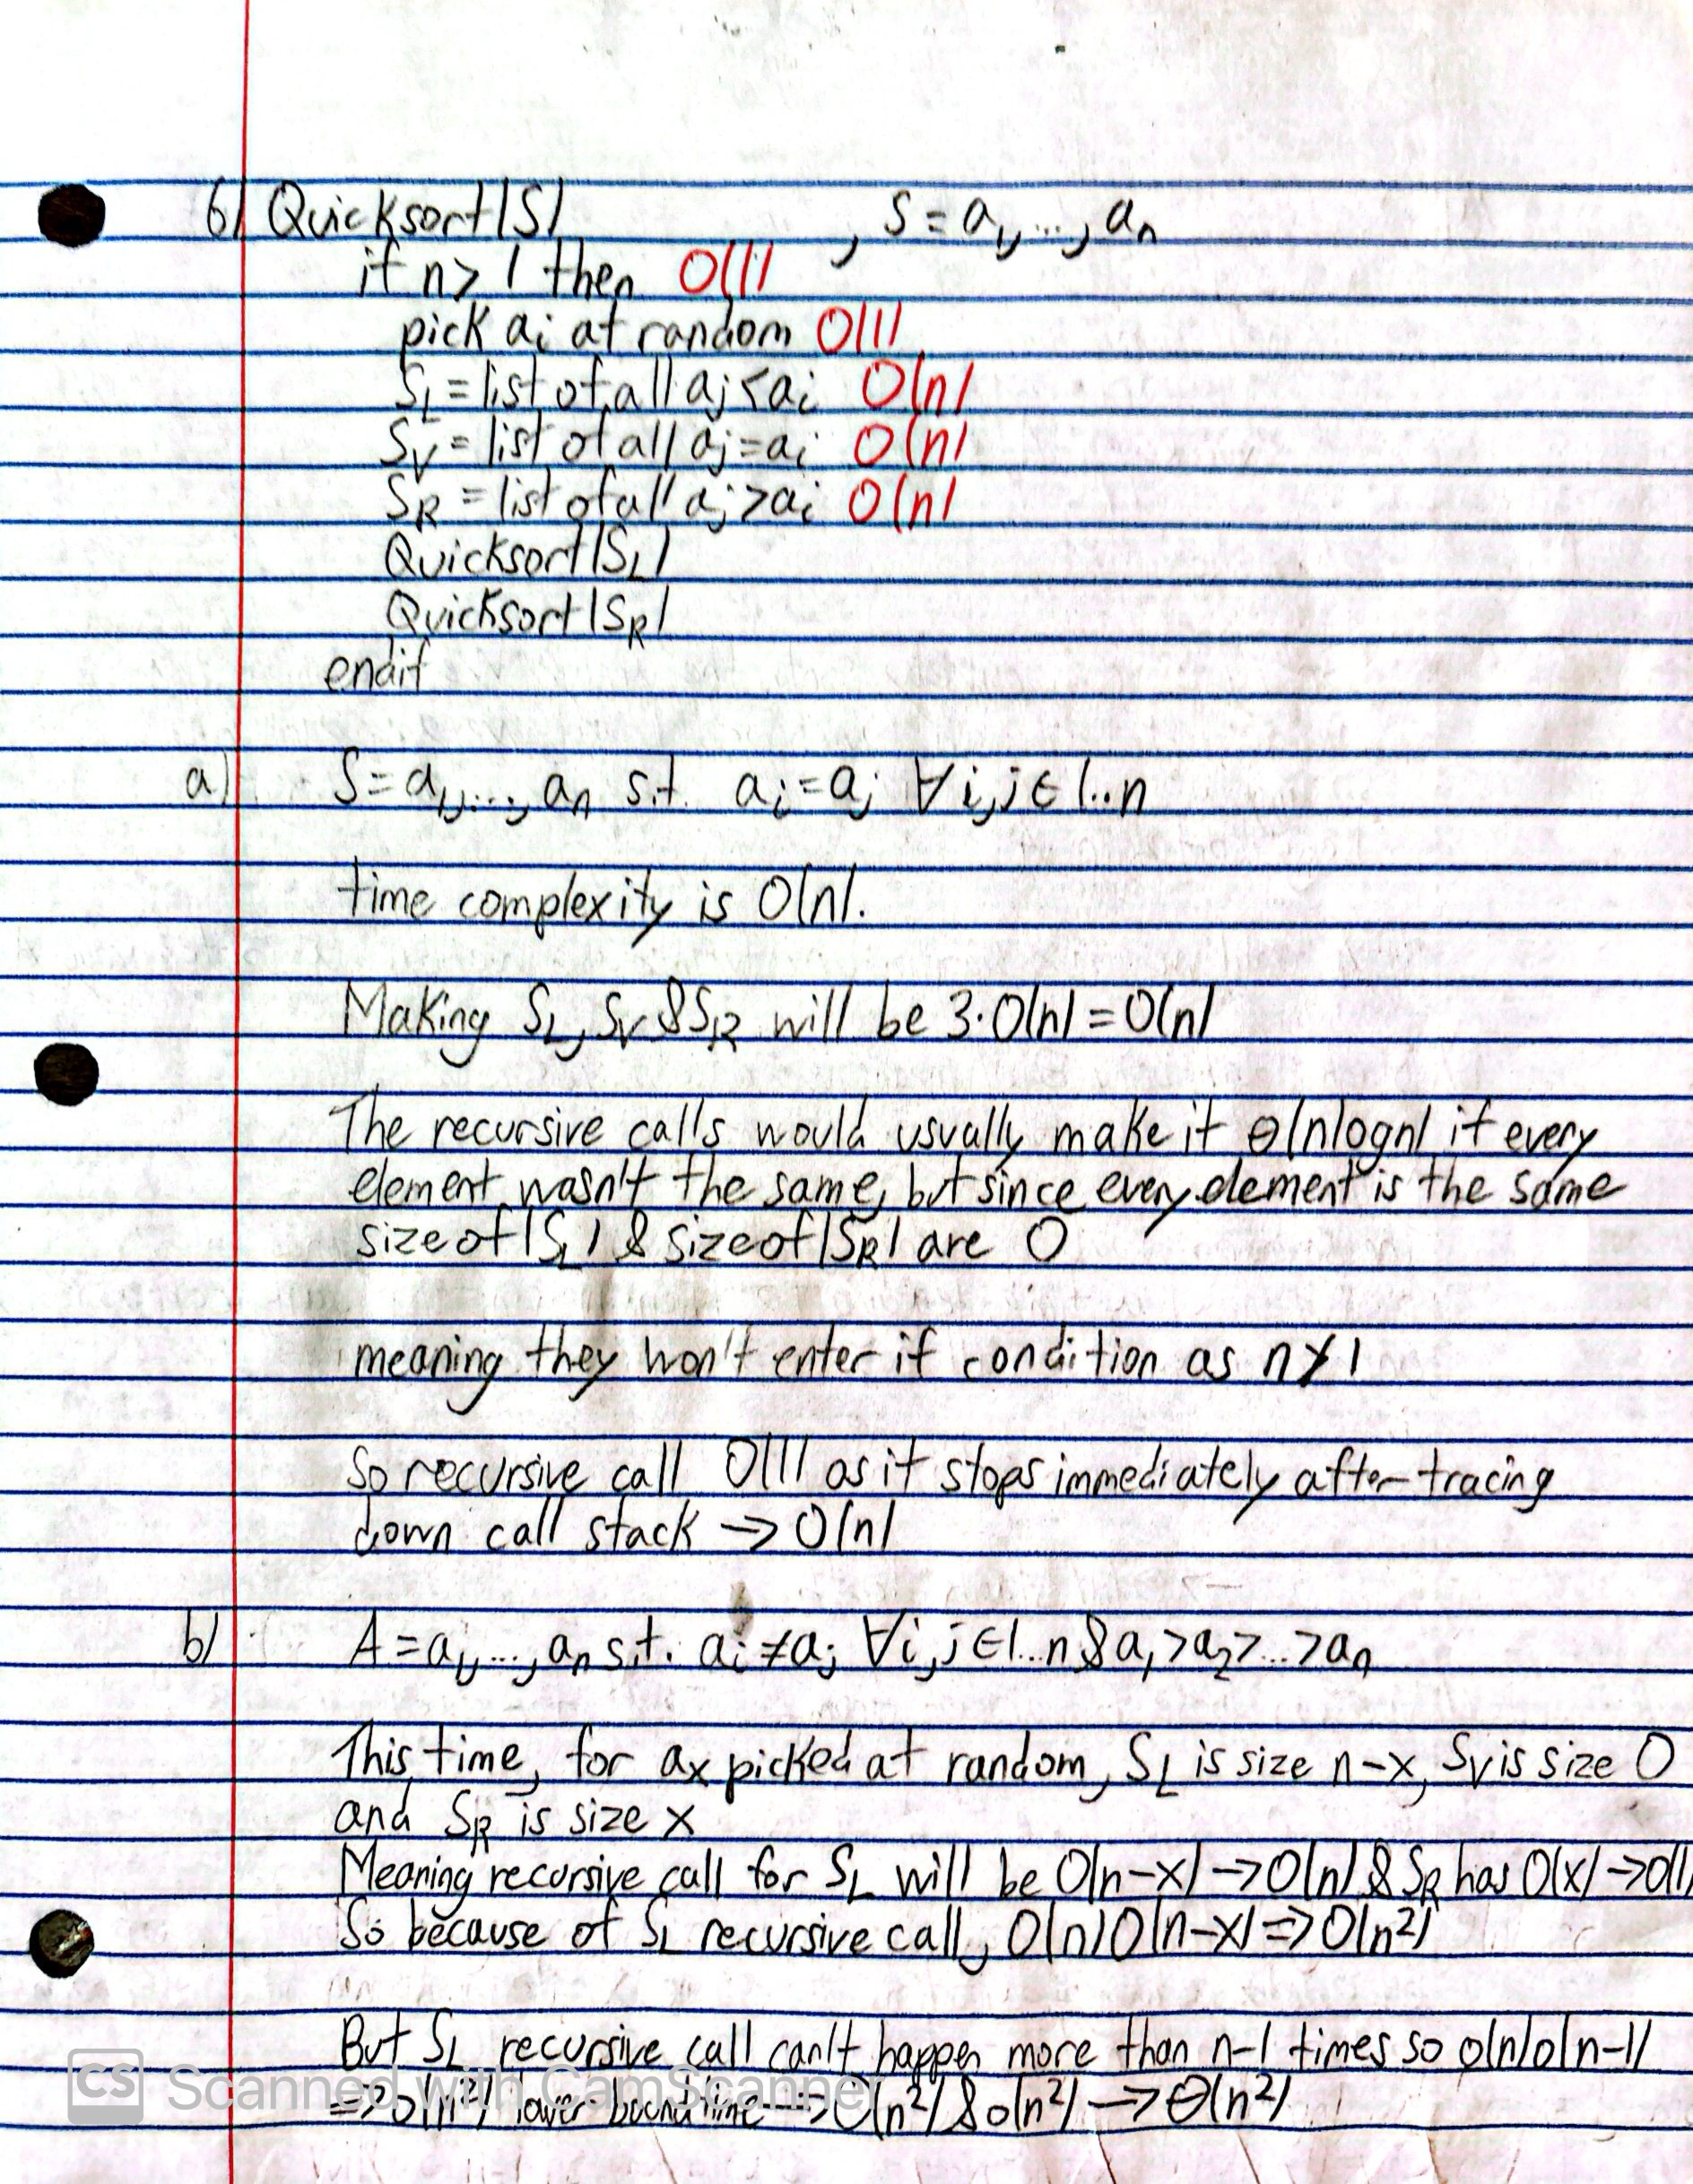 6) Quicksort(S) , S = a₁, ..., aₙ
if n > 1 then O(1)
pick aᵢ at random O(1)
S_L = list of all aⱼ < aᵢ O(n)
S_V = list of all aⱼ = aᵢ O(n)
S_R = list of all aⱼ > aᵢ O(n)
Quicksort(S_L)
Quicksort(S_R)
endif
a) S = a₁, ..., aₙ s.t. aᵢ = aⱼ ∀ i, j ∈ 1..n
time complexity is O(n).
Making S_L, S_V & S_R will be 3·O(n) = O(n)
The recursive calls would usually make it Θ(nlogn) if every
element wasn't the same, but since every element is the same
sizeof(S_L) & sizeof(S_R) are 0
meaning they won't enter if condition as n ≯ 1
So recursive call O(1) as it stops immediately after tracing
down call stack → O(n)
b) A = a₁, ..., aₙ s.t. aᵢ ≠ aⱼ ∀ i, j ∈ 1...n & a₁ > a₂ > ... > aₙ
This time, for aₓ picked at random, S_L is size n-x, S_V is size 0
and S_R is size x
Meaning recursive call for S_L will be O(n-x) → O(n) & S_R has O(x) → O(1)
So because of S_L recursive call, O(n)O(n-x) => O(n²)
But S_L recursive call can't happen more than n-1 times so o(n)o(n-1)
=> o(n²) lower bound time => O(n²) & o(n²) → Θ(n²)
CS Scanned with CamScanner